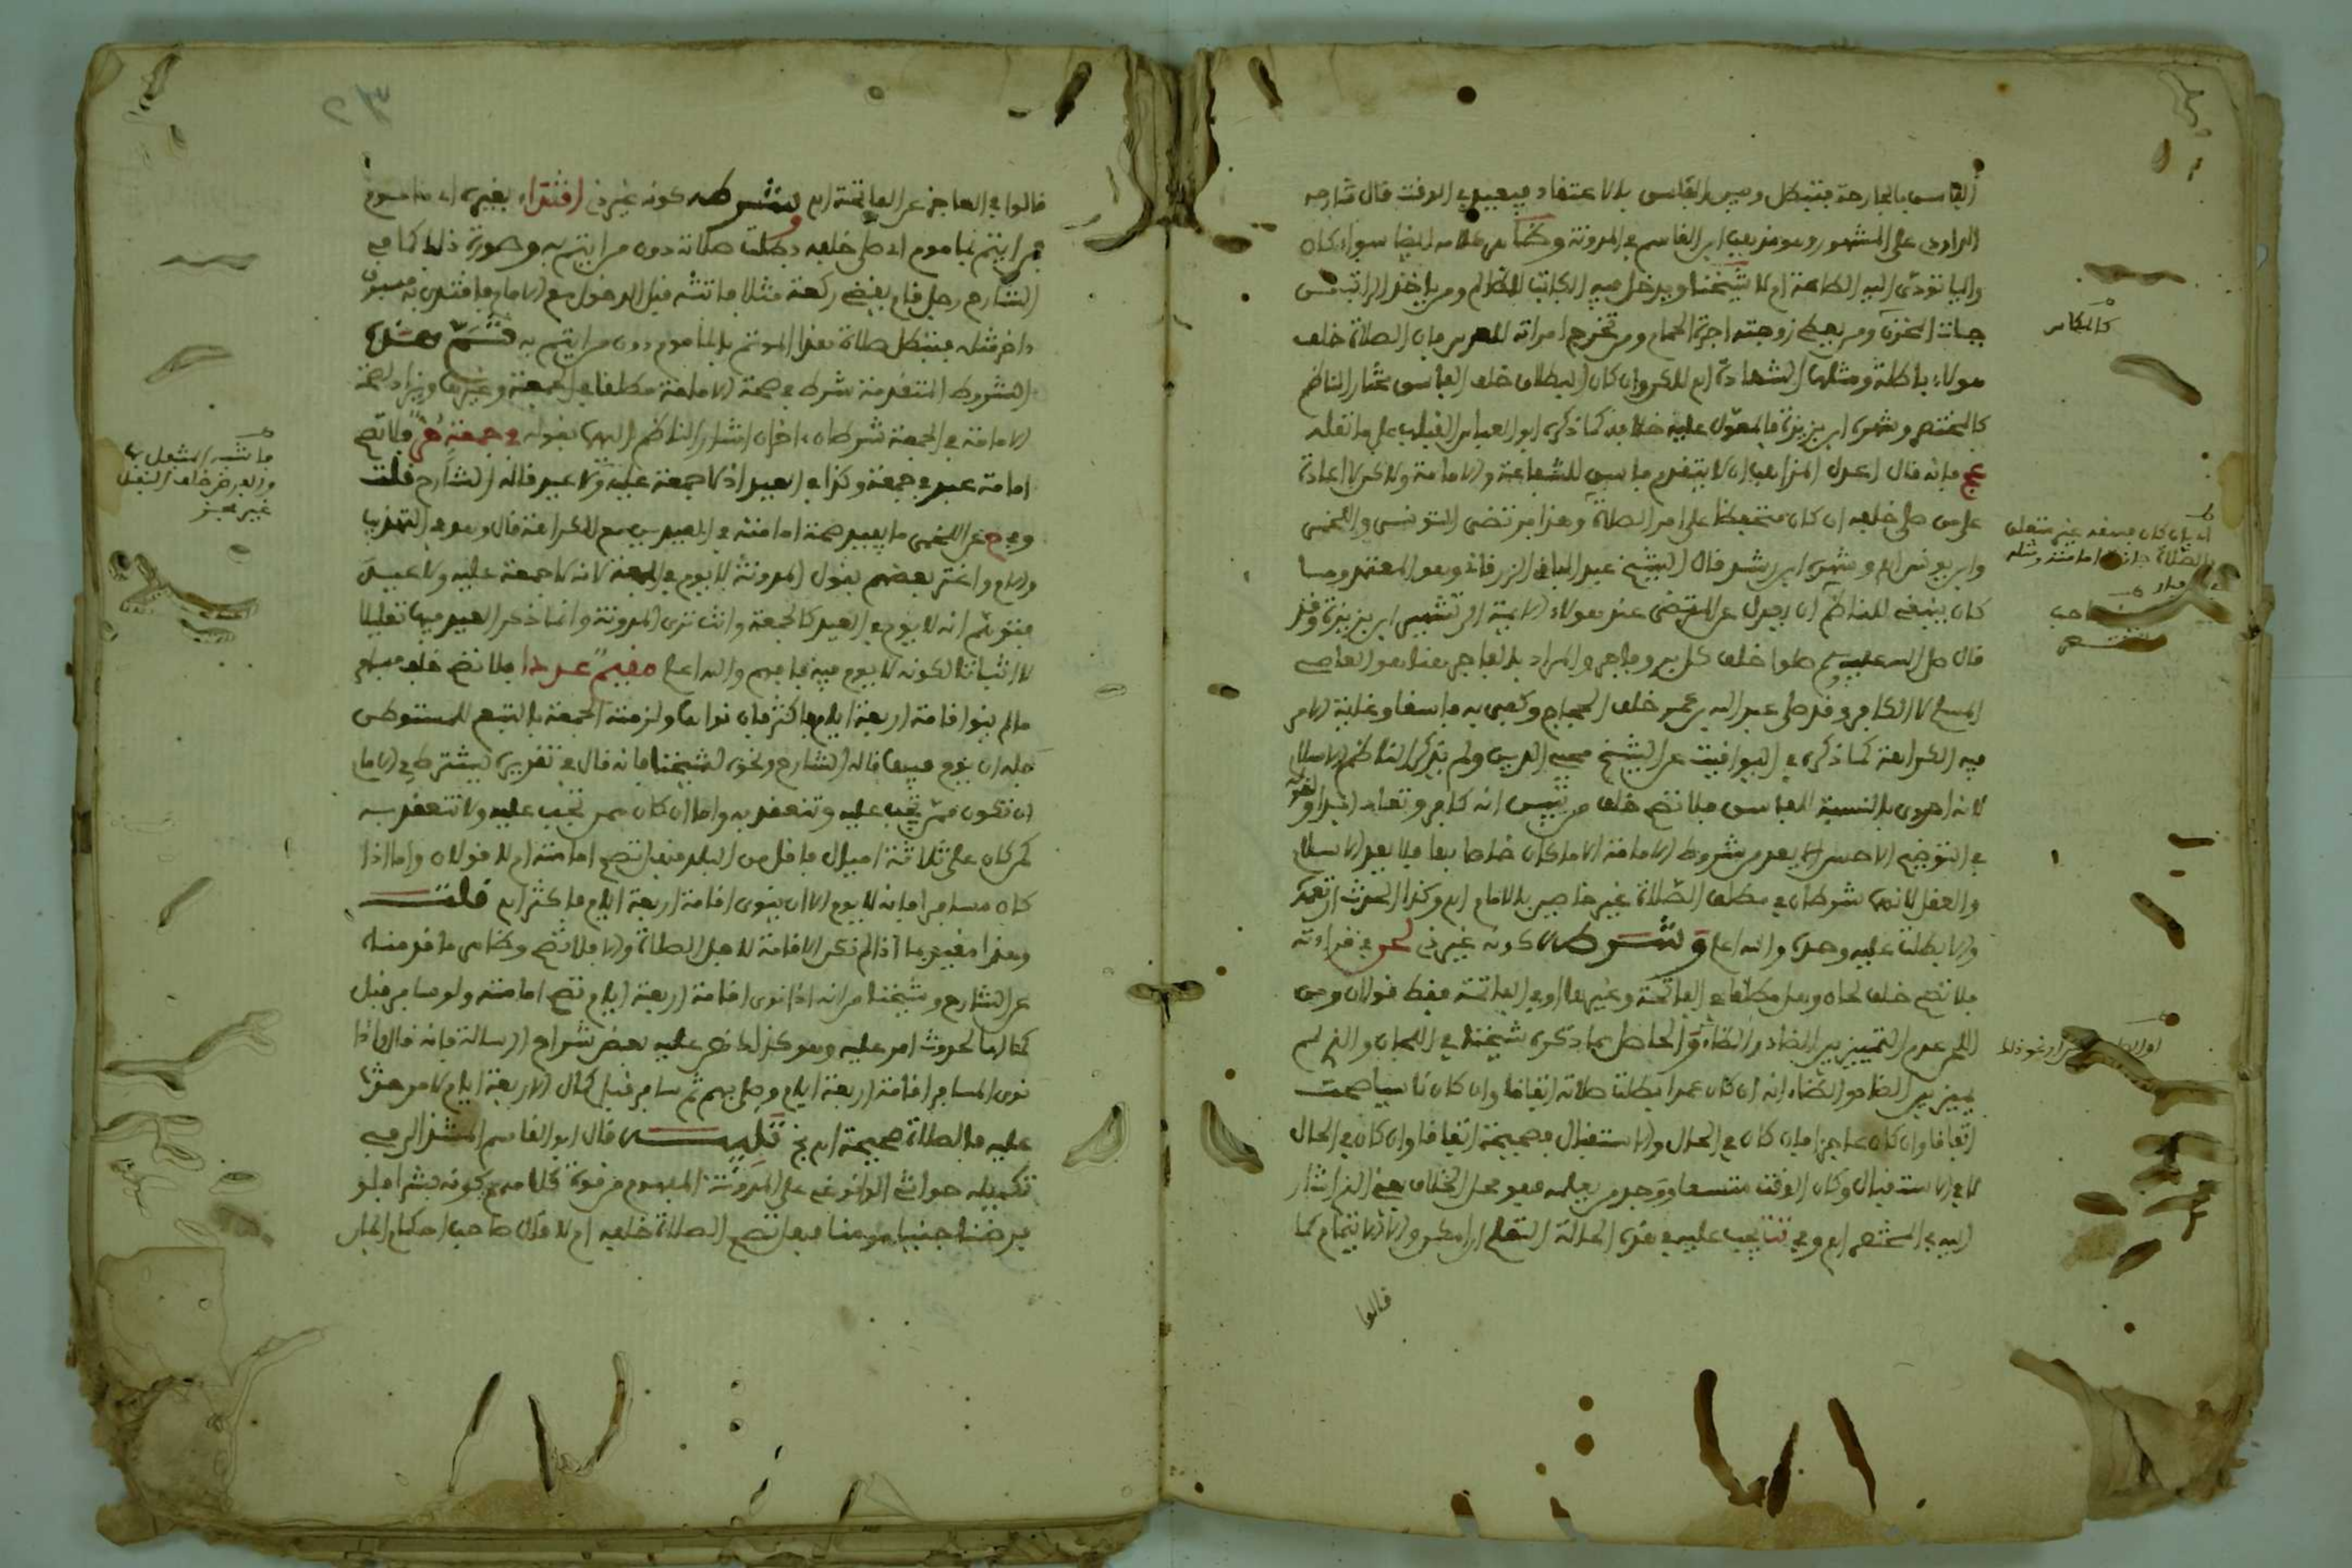 الفاسق بالجارحة فتبطل وبين الفاسق بالاعتقاد فيعيد في الوقت قال شارحه
الزاوي على المشهور وهو مذهب ابن القاسم في المدونة وظاهر كلامه ايضا سواء كان
واليا تؤدى اليه الطاعة ام لا شيخنا ويدخل فيه الكاتب للظالم ومن ياخذ الراتب من
جهات المخزن ومن يعطي زوجته اجرة الحمام ومن تخرج امراته للعرس فان الصلاة خلف
هولاء باطلة ومثلها الشهادة اه لاكن وان كان البطلان خلف الفاسق مختار الناظم
كالمختصر وشهره ابن بزيزة فالمعول عليه خلافه كما ذكره ابو العباس القباب على ما نقله
عج فانه قال اعدل المذاهب ان لا يتقدم فاسق للشفاعة والامامة ولاكن لا اعادة
على من صلى خلفه ان كان متحفظا على امر الصلاة وهذا مرتضى التونسي واللخمي
وابن يونس اه وشهره ابن رشد قال الشيخ عبد الباقي الزرقاني وهو المعتمد
كان ينبغي للناظم ان يعدل عن المرتضى عند هولاء الايمة الى تشهير ابن بزيزة وقد
قال صلى الله عليه وسلم صلوا خلف كل بر وفاجر والمراد بالفاجر هنا هو العاصي
المسلم لا الكافر وقد صلى عبد الله بن عمر خلف الحجاج وكفى به فاسقا وغاية الامر
فيه الكراهة كما ذكره في اليواقيت عن الشيخ محيي الدين ولم يذكر الناظم الاسلام
لانه احرى بالنسبة للفاسق فلا تصح خلف من تبين انه كافر وتعاد ابدا ولقوله
في التوضيح الاحسن الا يعد من شروط الامامة الا ما كان خاصا بها فلا يعد الاسلام
والعقل لانهما شرطان في مطلق الصلاة غير خاصين بالامام اه وكذا الحدث ان تعمد
والا بطلت عليه وحده والله اعلم وشرطه كونه غير ذي لحن في قراءته
فلا تصح خلف لحان وهل مطلقا في الفاتحة وغيرها او في الفاتحة فقط قولان ومن
اللحن عدم التمييز بين الضاد والظاء والحاصل مما ذكره شيخنا في اللحان والذي لم
يميز بين الضاد والظاء انه ان كان عمدا بطلت صلاته اتفاقا وان كان ناسيا صحت
اتفاقا وان كان عاجزا فان كان في الحال والاستقبال فصحيحة اتفاقا وان كان في الحال
لا في الاستقبال وكان الوقت متسعا ووجد من يعلمه فهو محل الخلاف يعني الذي اشار
اليه في المختصر اه وفي تت يجب عليه في هذه الحالة التعلم ان امكن والا الايتمام كما
قالوا
كالمكاس
اي بان كان فسقه غير متعلق
بالصلاة جازت امامته
قالوا في العاجز عن الفاتحة اه بشرطه كونه غير ذي اقتداء بغيره اي ماموم
فمن ايتم بماموم اي صلى خلفه بطلت صلاته دون من ايتم به وصورة ذلك كما في
الشارح رجل قام يقضي ركعة مثلا فاتته قبل الدخول مع الامام فاقتدى به مسبوق
ءاخر مثله فتبطل صلاة هذا الموتم بالماموم دون من ايتم به ثم هذه
الشروط المتقدمة شرط في صحة الامامة مطلقا في الجمعة وغيرها ويزاد لصحة
الامامة في الجمعة شرطان ءاخران اشار الناظم اليهما بقوله في جمعة حر فلا تصح
امامة عبد في جمعة وكذا في العيد اذ لا جمعة عليه ولا عيد قاله الشارح قلت
وفي ح عن اللخمي ما يفيد صحة امامته في العيدين مع الكراهة قال وهو في التهذيب
والام واغتر بعضهم بقول المدونة لا يوم في الجمعة لانه لا جمعة عليه ولا عيد
فتوهم انه لا يوم في العيد كالجمعة وانت ترى المدونة وانما ذكر العيد فيها تعليلا
لا اثباتا لكونه لا يوم فيه فافهم والله اعلم مقيم عددا فلا تصح خلف مسافر
ما لم ينو اقامة اربعة ايام فاكثر فان نواها ولزمته الجمعة بالتبع للمستوطن
جاز ان يوم فيها قاله الشارح ونحوه لشيخنا فانه قال في تقريره يشترط في الامام
ان تكون ممن تجب عليه وتنعقد به واما ان كان ممن تجب عليه ولا تنعقد به
كمن كان على ثلاثة اميال فاقل من البلد فهل تصح امامته ام لا قولان واما اذا
كان مسافرا فانه لا يوم الا ان ينوى اقامة اربعة ايام فاكثر اه قلت
وهذا مقيد بما اذا لم تكن الاقامة لاجل الصلاة والا فلا تصح وظاهر ما قدمناه
عن الشارح وشيخنا من انه اذا نوى اقامة اربعة ايام تصح امامته ولو سافر قبل
كمالها لحدوث امر عليه وهو كذلك نص عليه بعض شراح الرسالة فانه قال واذا
نوى المسافر اقامة اربعة ايام وصلى بهم ثم سافر قبل كمال الاربعة ايام لامر حدث
عليه فالصلاة صحيحة اه عج تنبيه قال ابو القاسم المشذالي في
تكميله حواشي الوانوغي على المدونة المفهوم من قوة كلامهم كونه بشرا فلو
فرضنا جنيا مومنا فهل تصح الصلاة خلفه ام لا قال صاحب احكام الجان
والفرض خلف النفل
غير